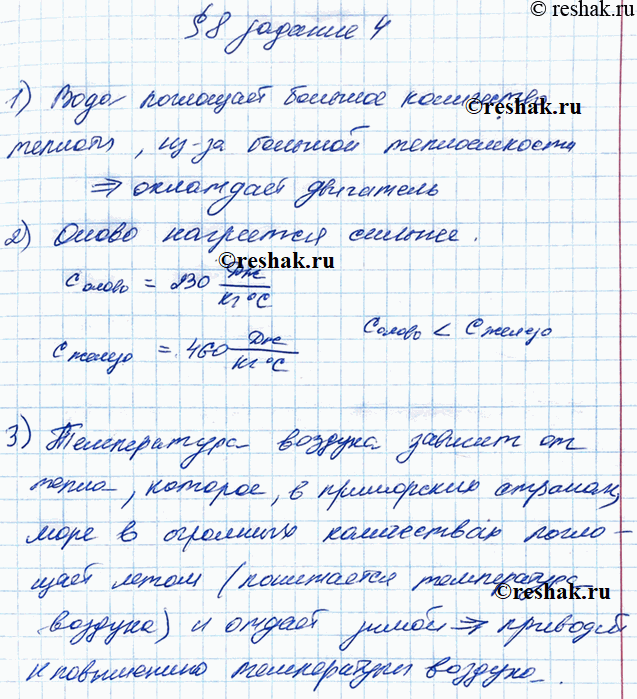 © reshak.ru
§8 задание 4
1) Вода поглощает большое количество
© reshak.ru
теплоты, из-за большой теплоемкости
⇒ охлаждает двигатель
2) Олово нагреется сильнее.
© reshak.ru
C олово = 230 Дж/кг°С
C олово < C железо
C железо = 460 Дж/кг°С
3) Температура воздуха зависит от
тепла, которое, в приморских странах,
море в огромных количествах погло-
щает летом (понижается температура
© reshak.ru
воздуха) и отдает зимой ⇒ приводит
к повышению температуры воздуха.